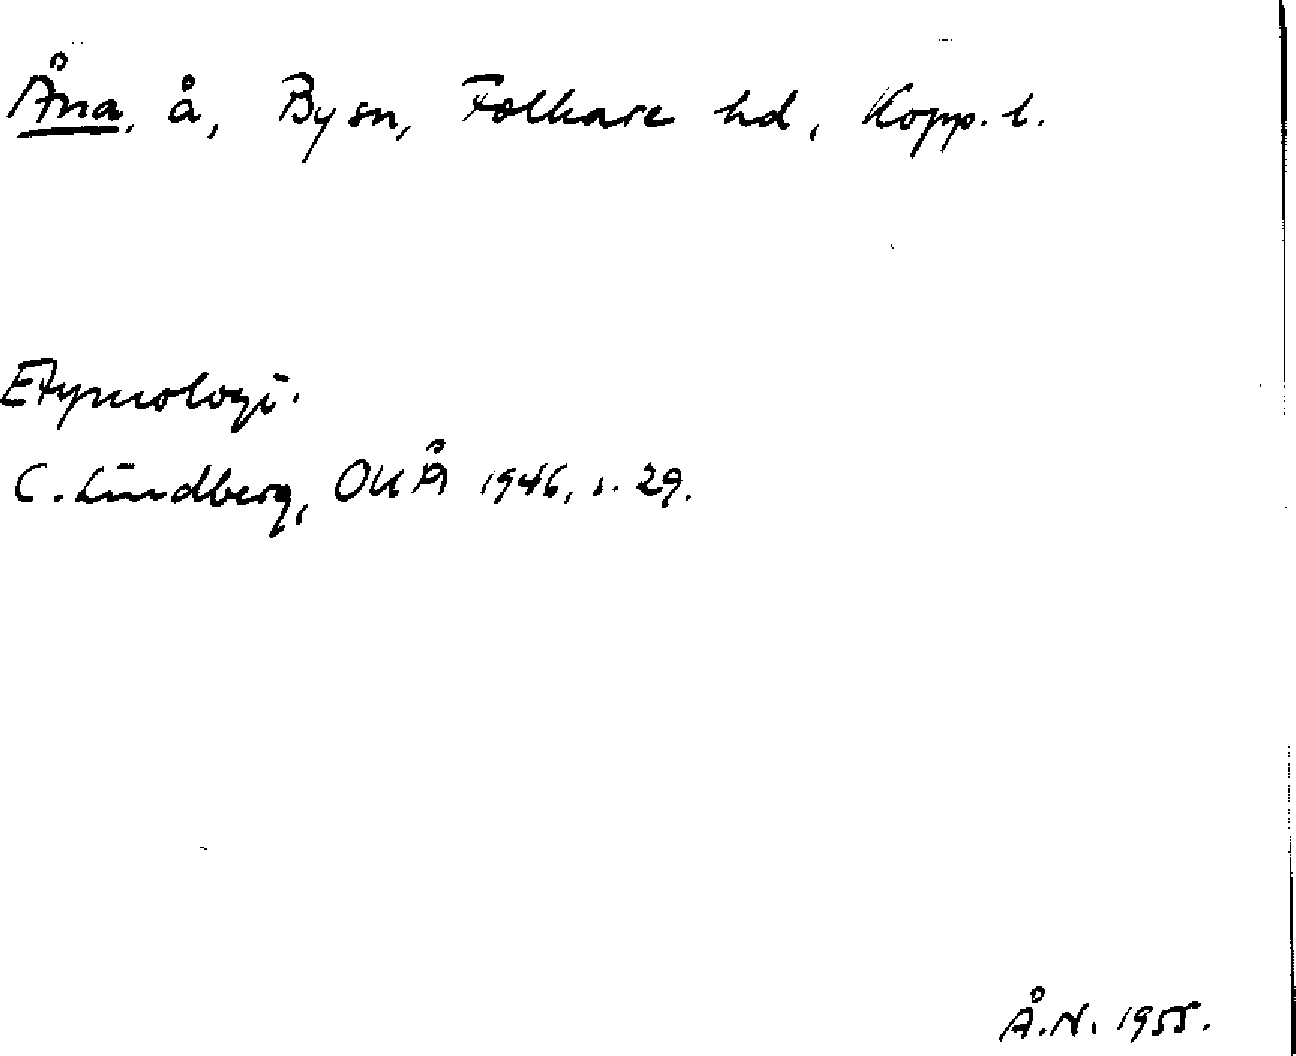 Åna, å, By sn, Folkare hd, Kopp. l.
Etymologi.
C. Lindberg, OUÅ 1946, s. 29.
Å.N. 1955.